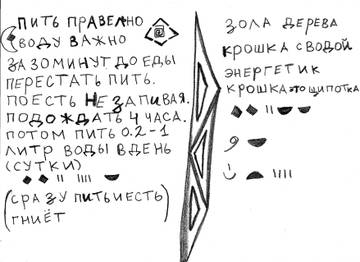 ПИТЬ ПРАВЕЛНО
ВОДУ ВАЖНО
ЗА 30 МИНУТ ДО ЕДЫ
ПЕРЕСТАТЬ ПИТЬ.
ПОЕСТЬ НЕ ЗАПИВАЯ.
ПОДОЖДАТЬ 4 ЧАСА.
ПОТОМ ПИТЬ 0.2-1
ЛИТР ВОДЫ В ДЕНЬ
(СУТКИ)
(СРАЗУ ПИТЬ И ЕСТЬ
ГНИЁТ)
ЗОЛА ДЕРЕВА
КРОШКА С ВОДОЙ
ЭНЕРГЕТИК
КРОШКА ЭТО ЩИПОТКА